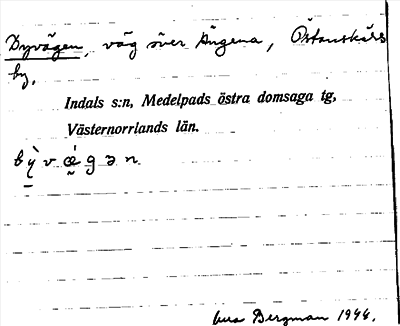 Byvägen, väg över Ängena, Östanskärs
by.
Indals s:n, Medelpads östra domsaga tg,
Västernorrlands län.
bỳvǽgən
Bergman 1946.